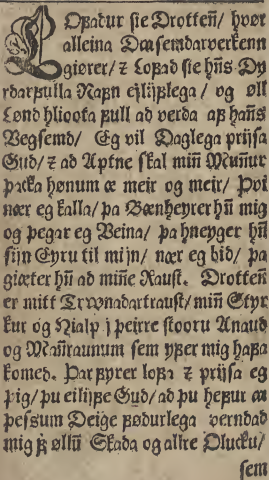 LOfadur sie Drotteñ/ hvør
alleina Dasemdarverkenn
giører/ ⁊ Lofad sie hñs Dy
rdarfulla Nafn eilijflega/ og øll
Lønd hlioota full ad verda af hañs
Vegsemd/ Eg vil Daglega prijsa
Gud/ ⁊ ad Aptne skal miñ Muñur
packa hønum æ meir og meir/ Þvi
nær eg kalla/ þa Bænheyrer hñ mig
og þegar eg Veina/ þa hneyger hñ
sijn Eyru til mijn/ nær eg bid/ þa
giæter hñ ad miñe Raust. Drotteñ
er mitt Trwnadartraust/ miñ Styr
kur og Hialp j þeirre stooru Anaud
og Mañraunum sem yfer mig hafa
komed. Þar fyrer lofa ⁊ prijsa eg
þig/ þu eilijfe Gud/ ad þu hefur æ
þessum Deige fødurlega verndad
mig f øllū Skada og allre Olucku/
sem